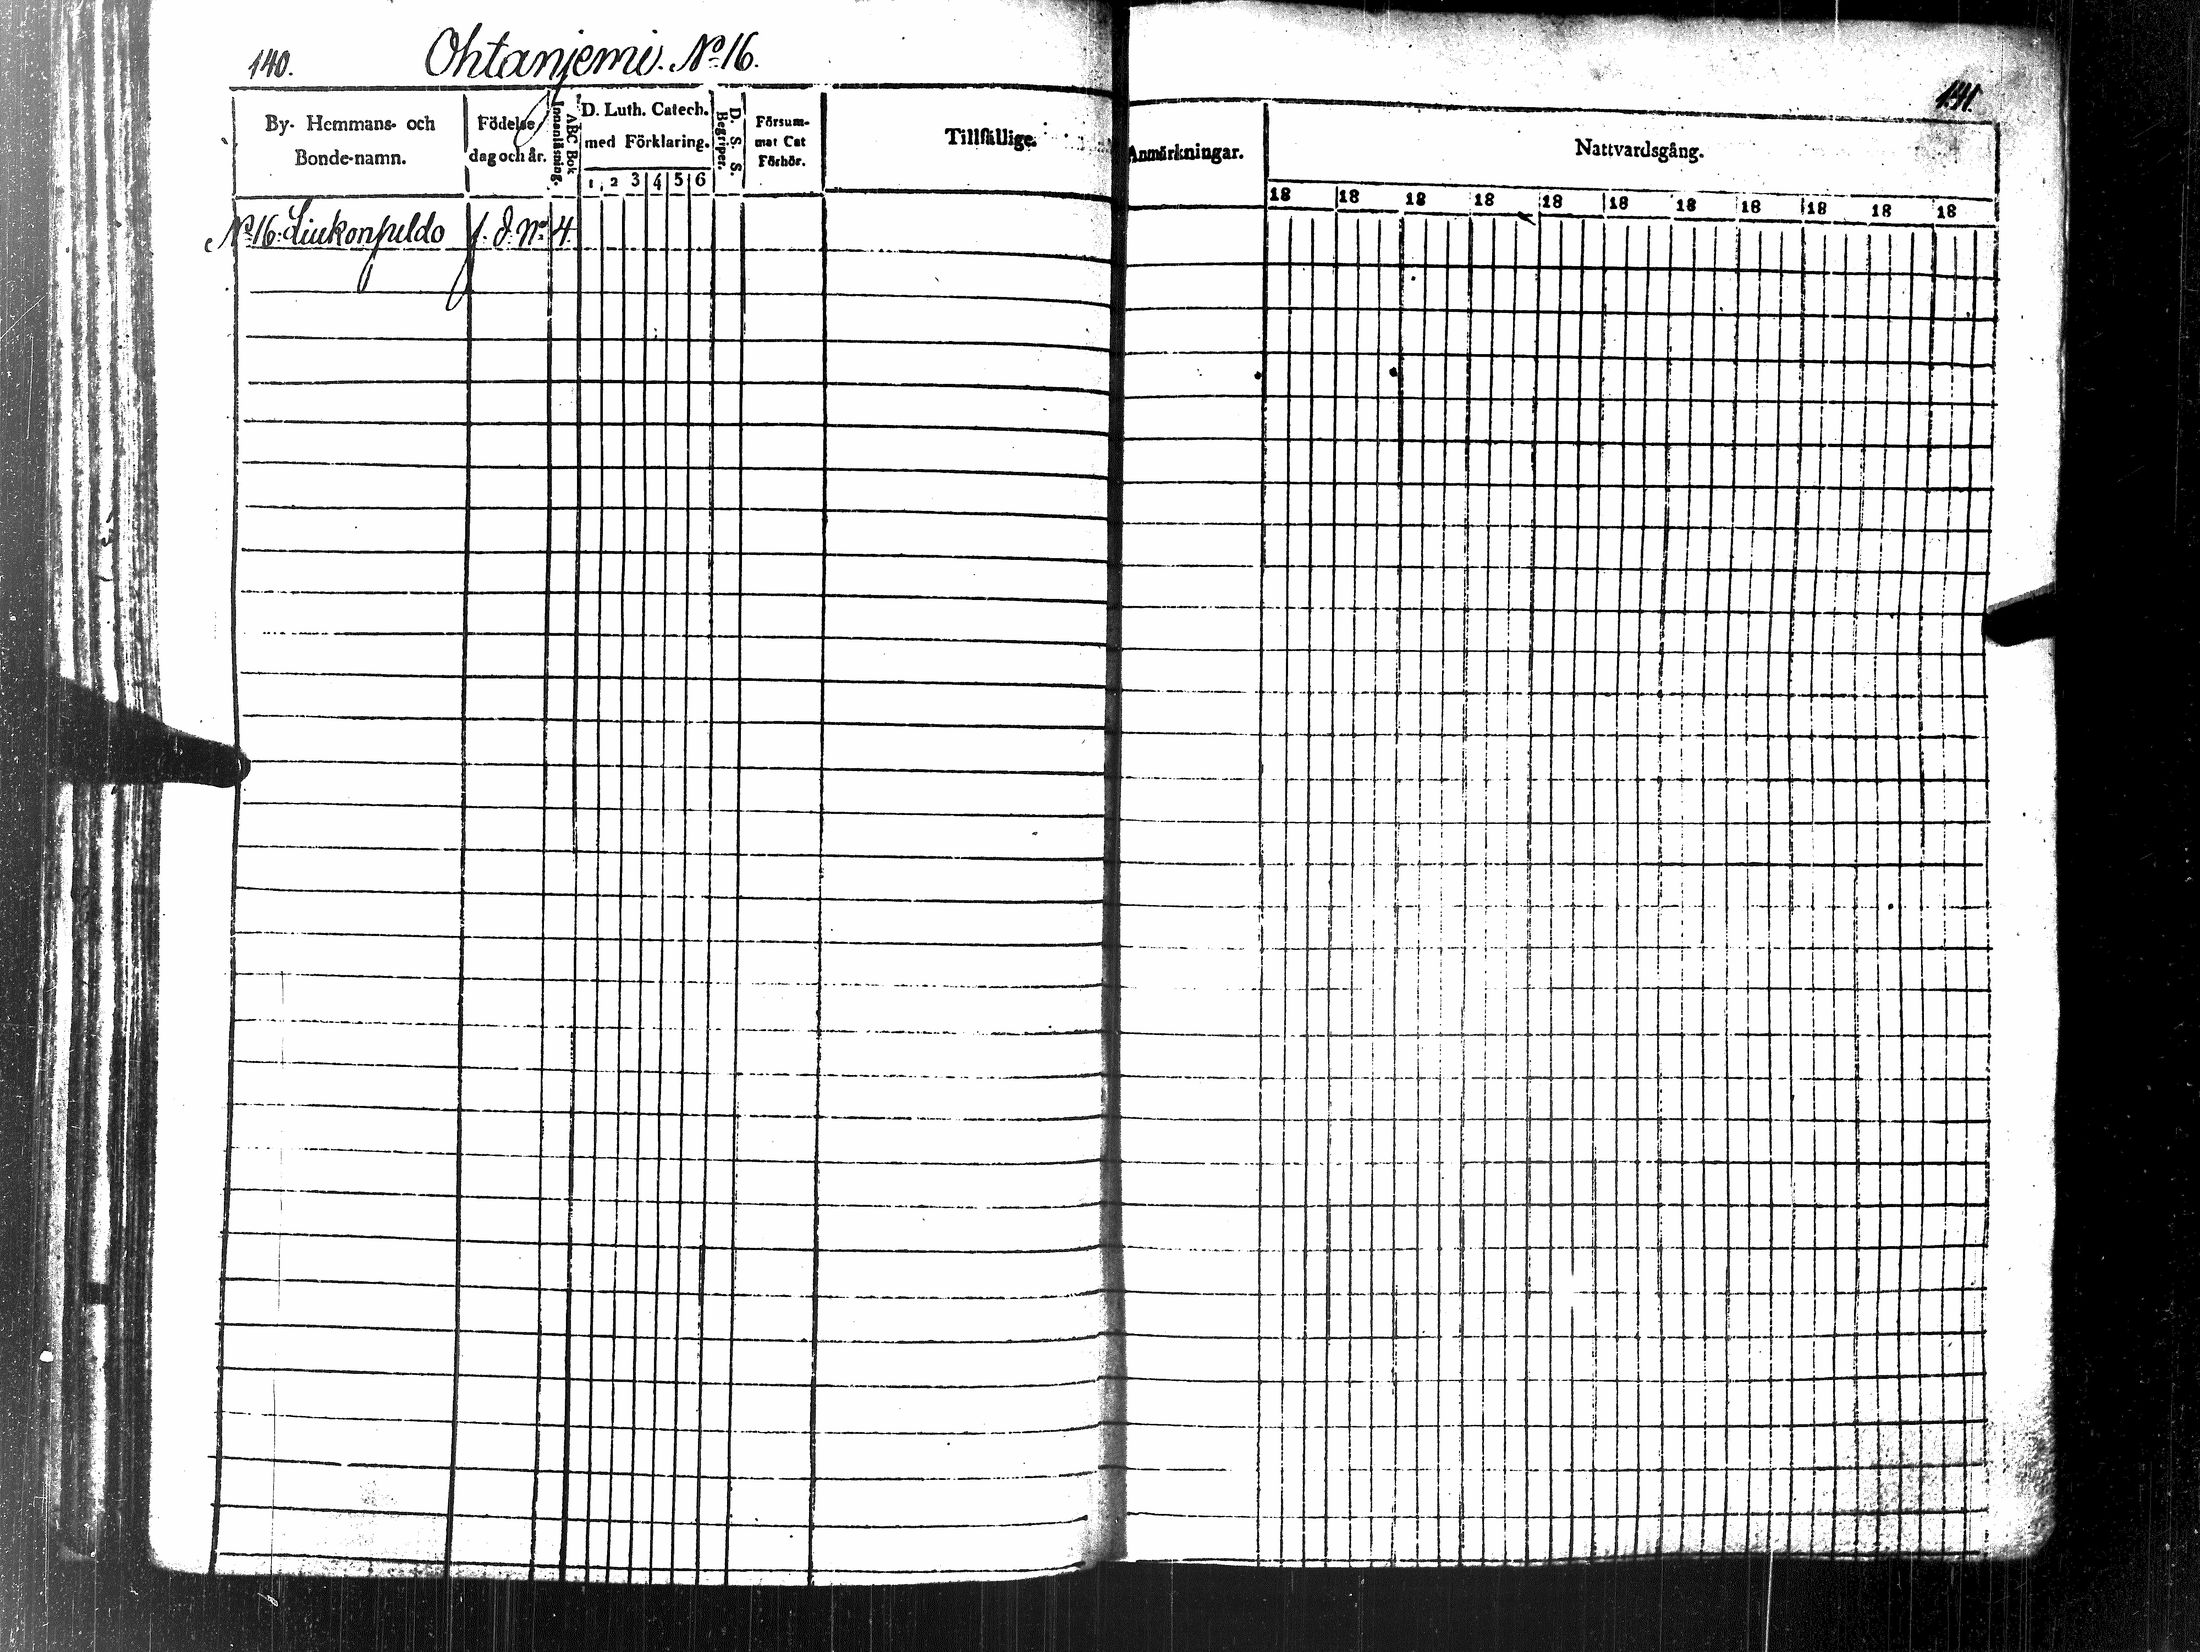 140. Ohtanjemi. No 16.
141.
By- Hemmans- och
Bonde-namn.
Födelse
dag och år.
Innanläsning.
ABC Bok
D. Luth. Catech.
med Förklaring.
1 2 3 4 5 6
D. S. S.
Begriper.
Försum-
mat Cat
Förhör.
Tillfällige
Anmärkningar.
Nattvardsgång.
18 18 18 18 18 18 18 18 18 18 18
No 16. Liukonpeldo f. d. No 4.